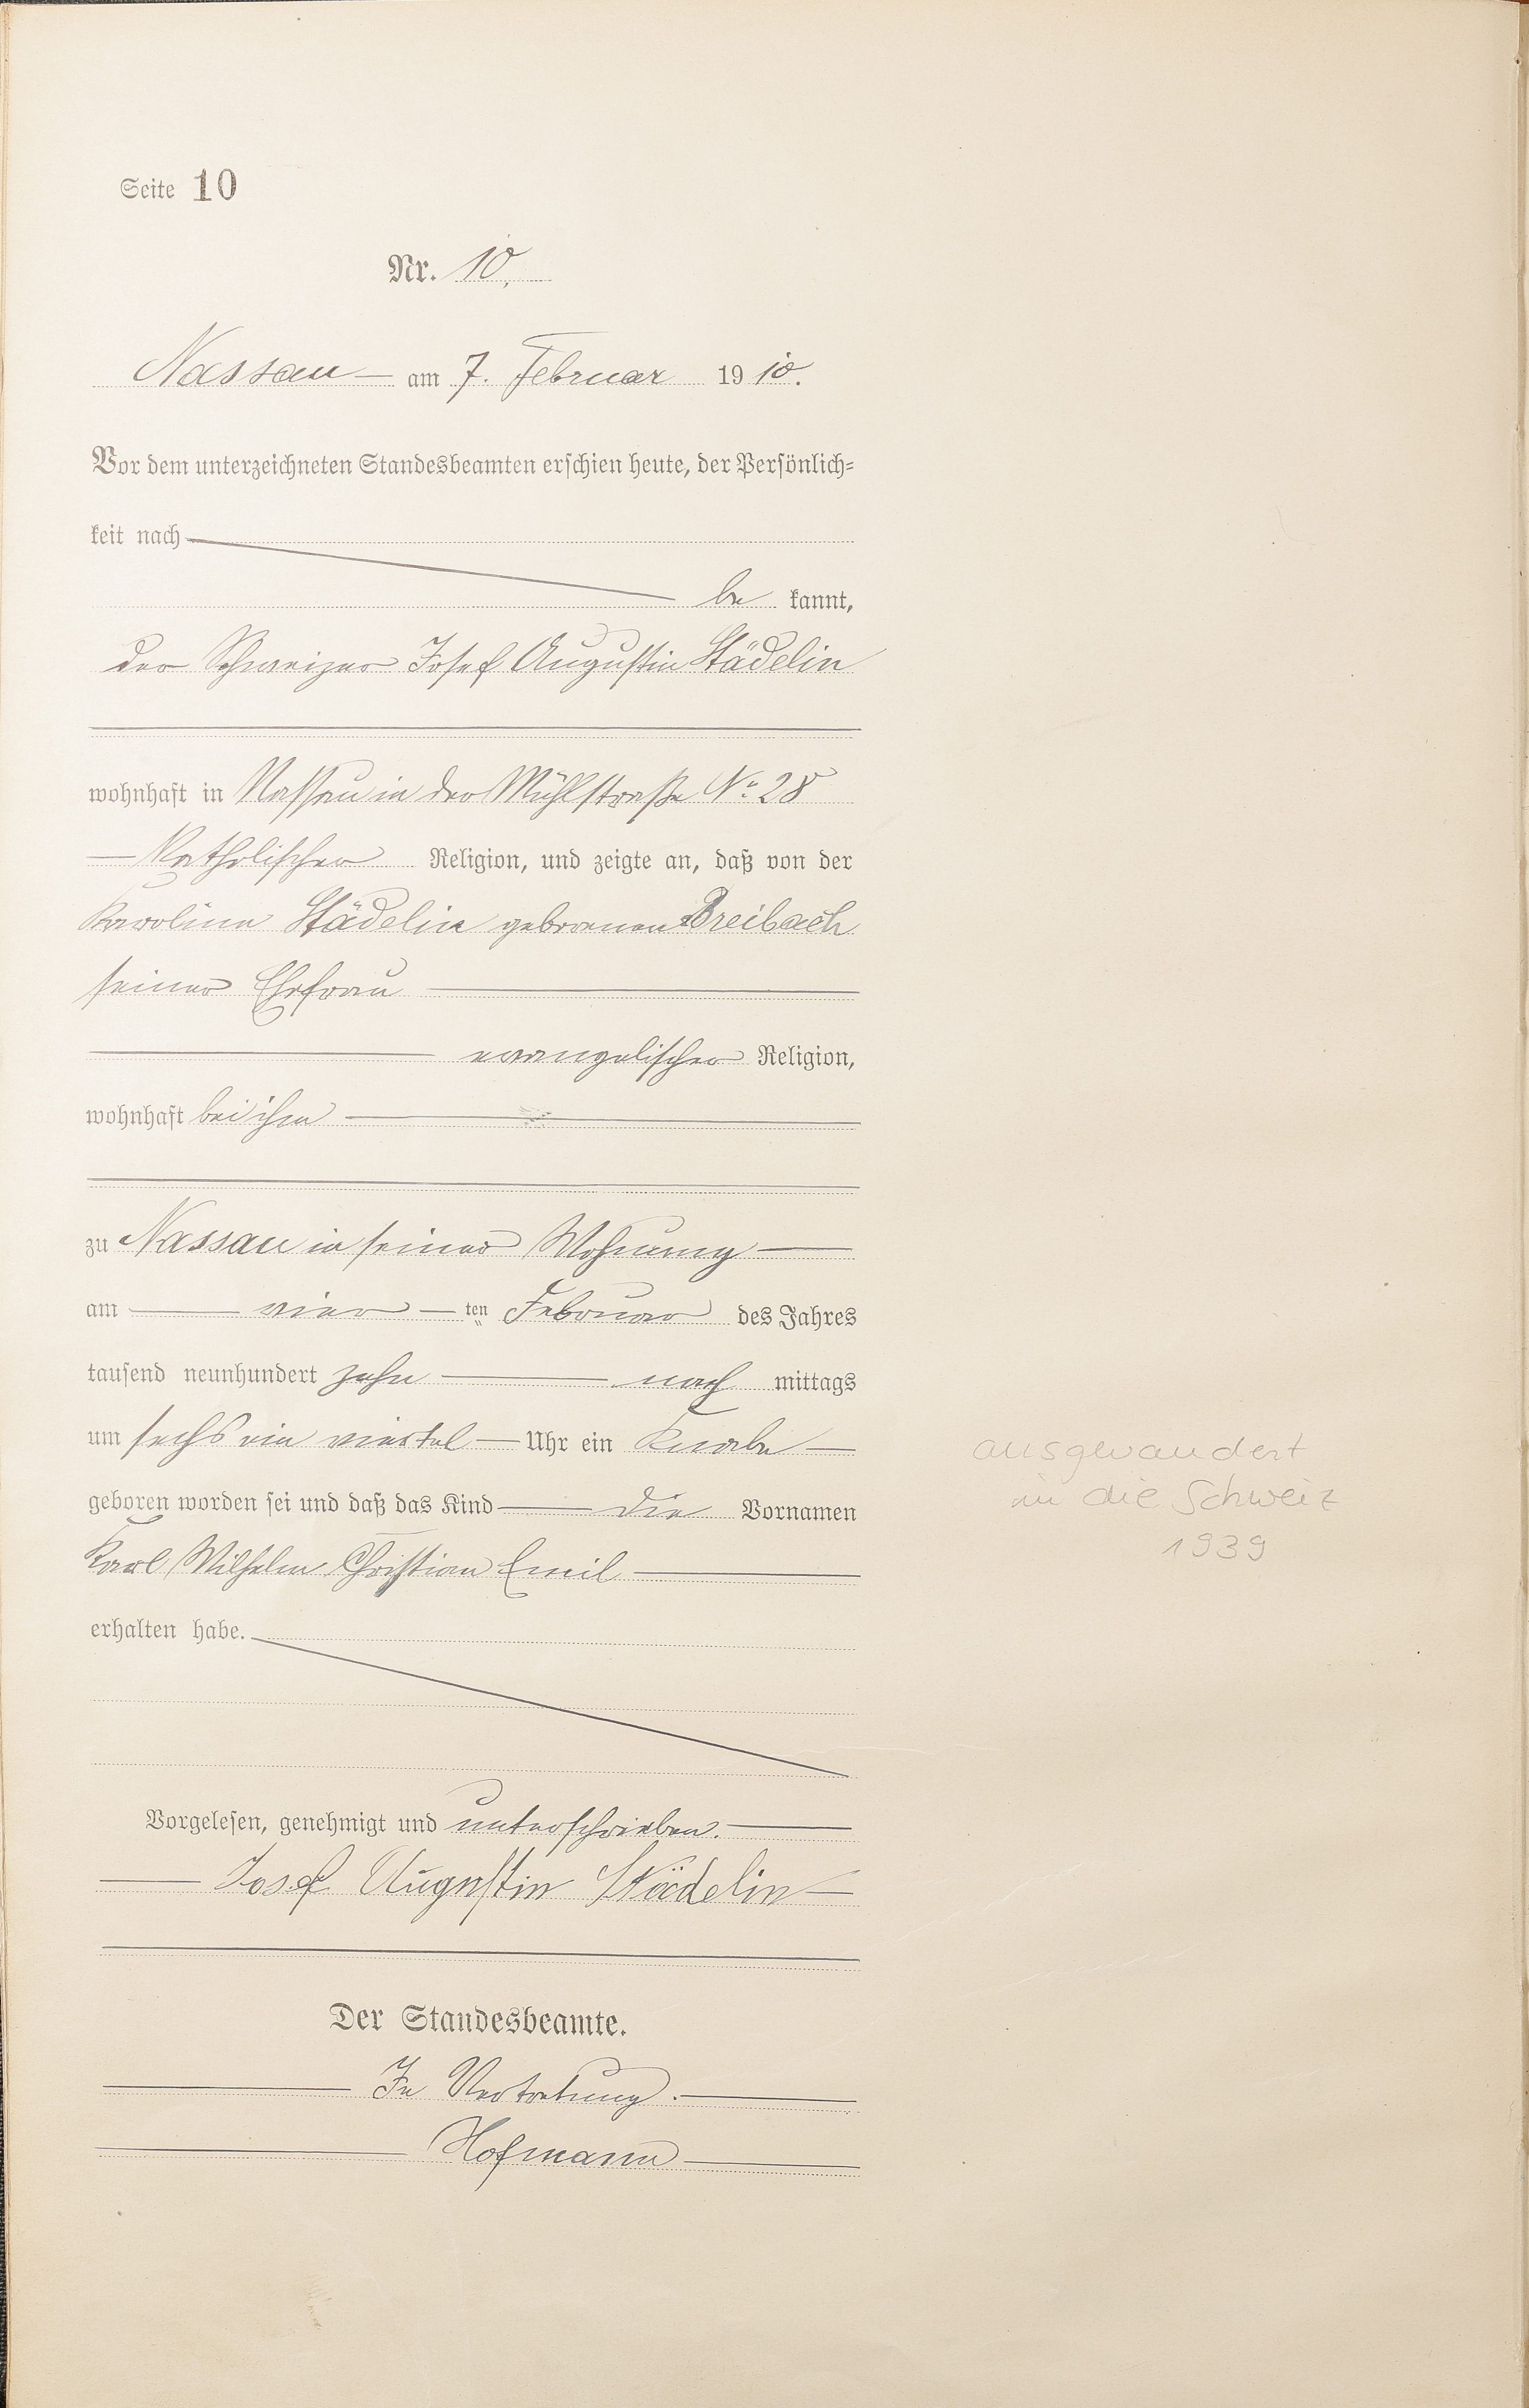 Seite 10
Nr. 10.
Nassau am 7. Februar 1910.
Vor dem unterzeichneten Standesbeamten erschien heute, der Persönlich=
keit nach
be kannt,
der Schweizer Josef Augustin Städelin
wohnhaft in Nassau in der Mühlstraße No. 28
Katholischer Religion, und zeigte an, daß von der
Karoline Städelin geborenen Breibach
seiner Ehefrau
evangelischer Religion,
wohnhaft bei ihm
zu Nassau in seiner Wohnung
am vier ten Februar des Jahres
tausend neunhundert zehn nach mittags
um sechs ein viertel Uhr ein Knabe
geboren worden sei und daß das Kind die Vornamen
Karl Wilhelm Christian Emil
erhalten habe.
ausgewandert
in die Schweiz
1939
Vorgelesen, genehmigt und unterschrieben.
Josef Augustin Städelin
Der Standesbeamte.
In Vertretung.
Hofmann